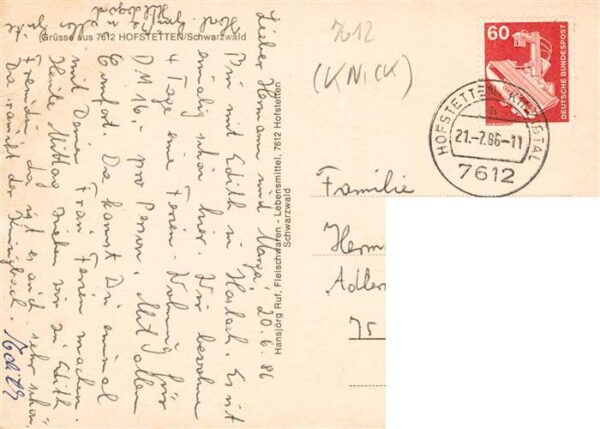 Grüsse aus 7612 HOFSTETTEN/Schwarzwald
Lieber Hermann und Marga, 20.6.86
Bin mit Edith in Haslach. Es ist
einmalig schön hier. Wir bewohnen
4 Tage eine Ferien-Wohnung für
DM 16.- pro Person. Mit allem
Comfort. Da kannst Du einmal
mit Deiner Frau Ferien machen.
Heute Mittag ziehen wir zu Edith
Freundin da ist es auch sehr schön.
Da rauscht der
Hansjörg Ruf, Fleischwaren - Lebensmittel, 7612 Hofstetten
Schwarzwald
7612
(KNICK)
60
DEUTSCHE BUNDESPOST
HOFSTETTEN, KINZIGTAL
a
21.-7.86-11
7612
Familie
Herm
Adler
75